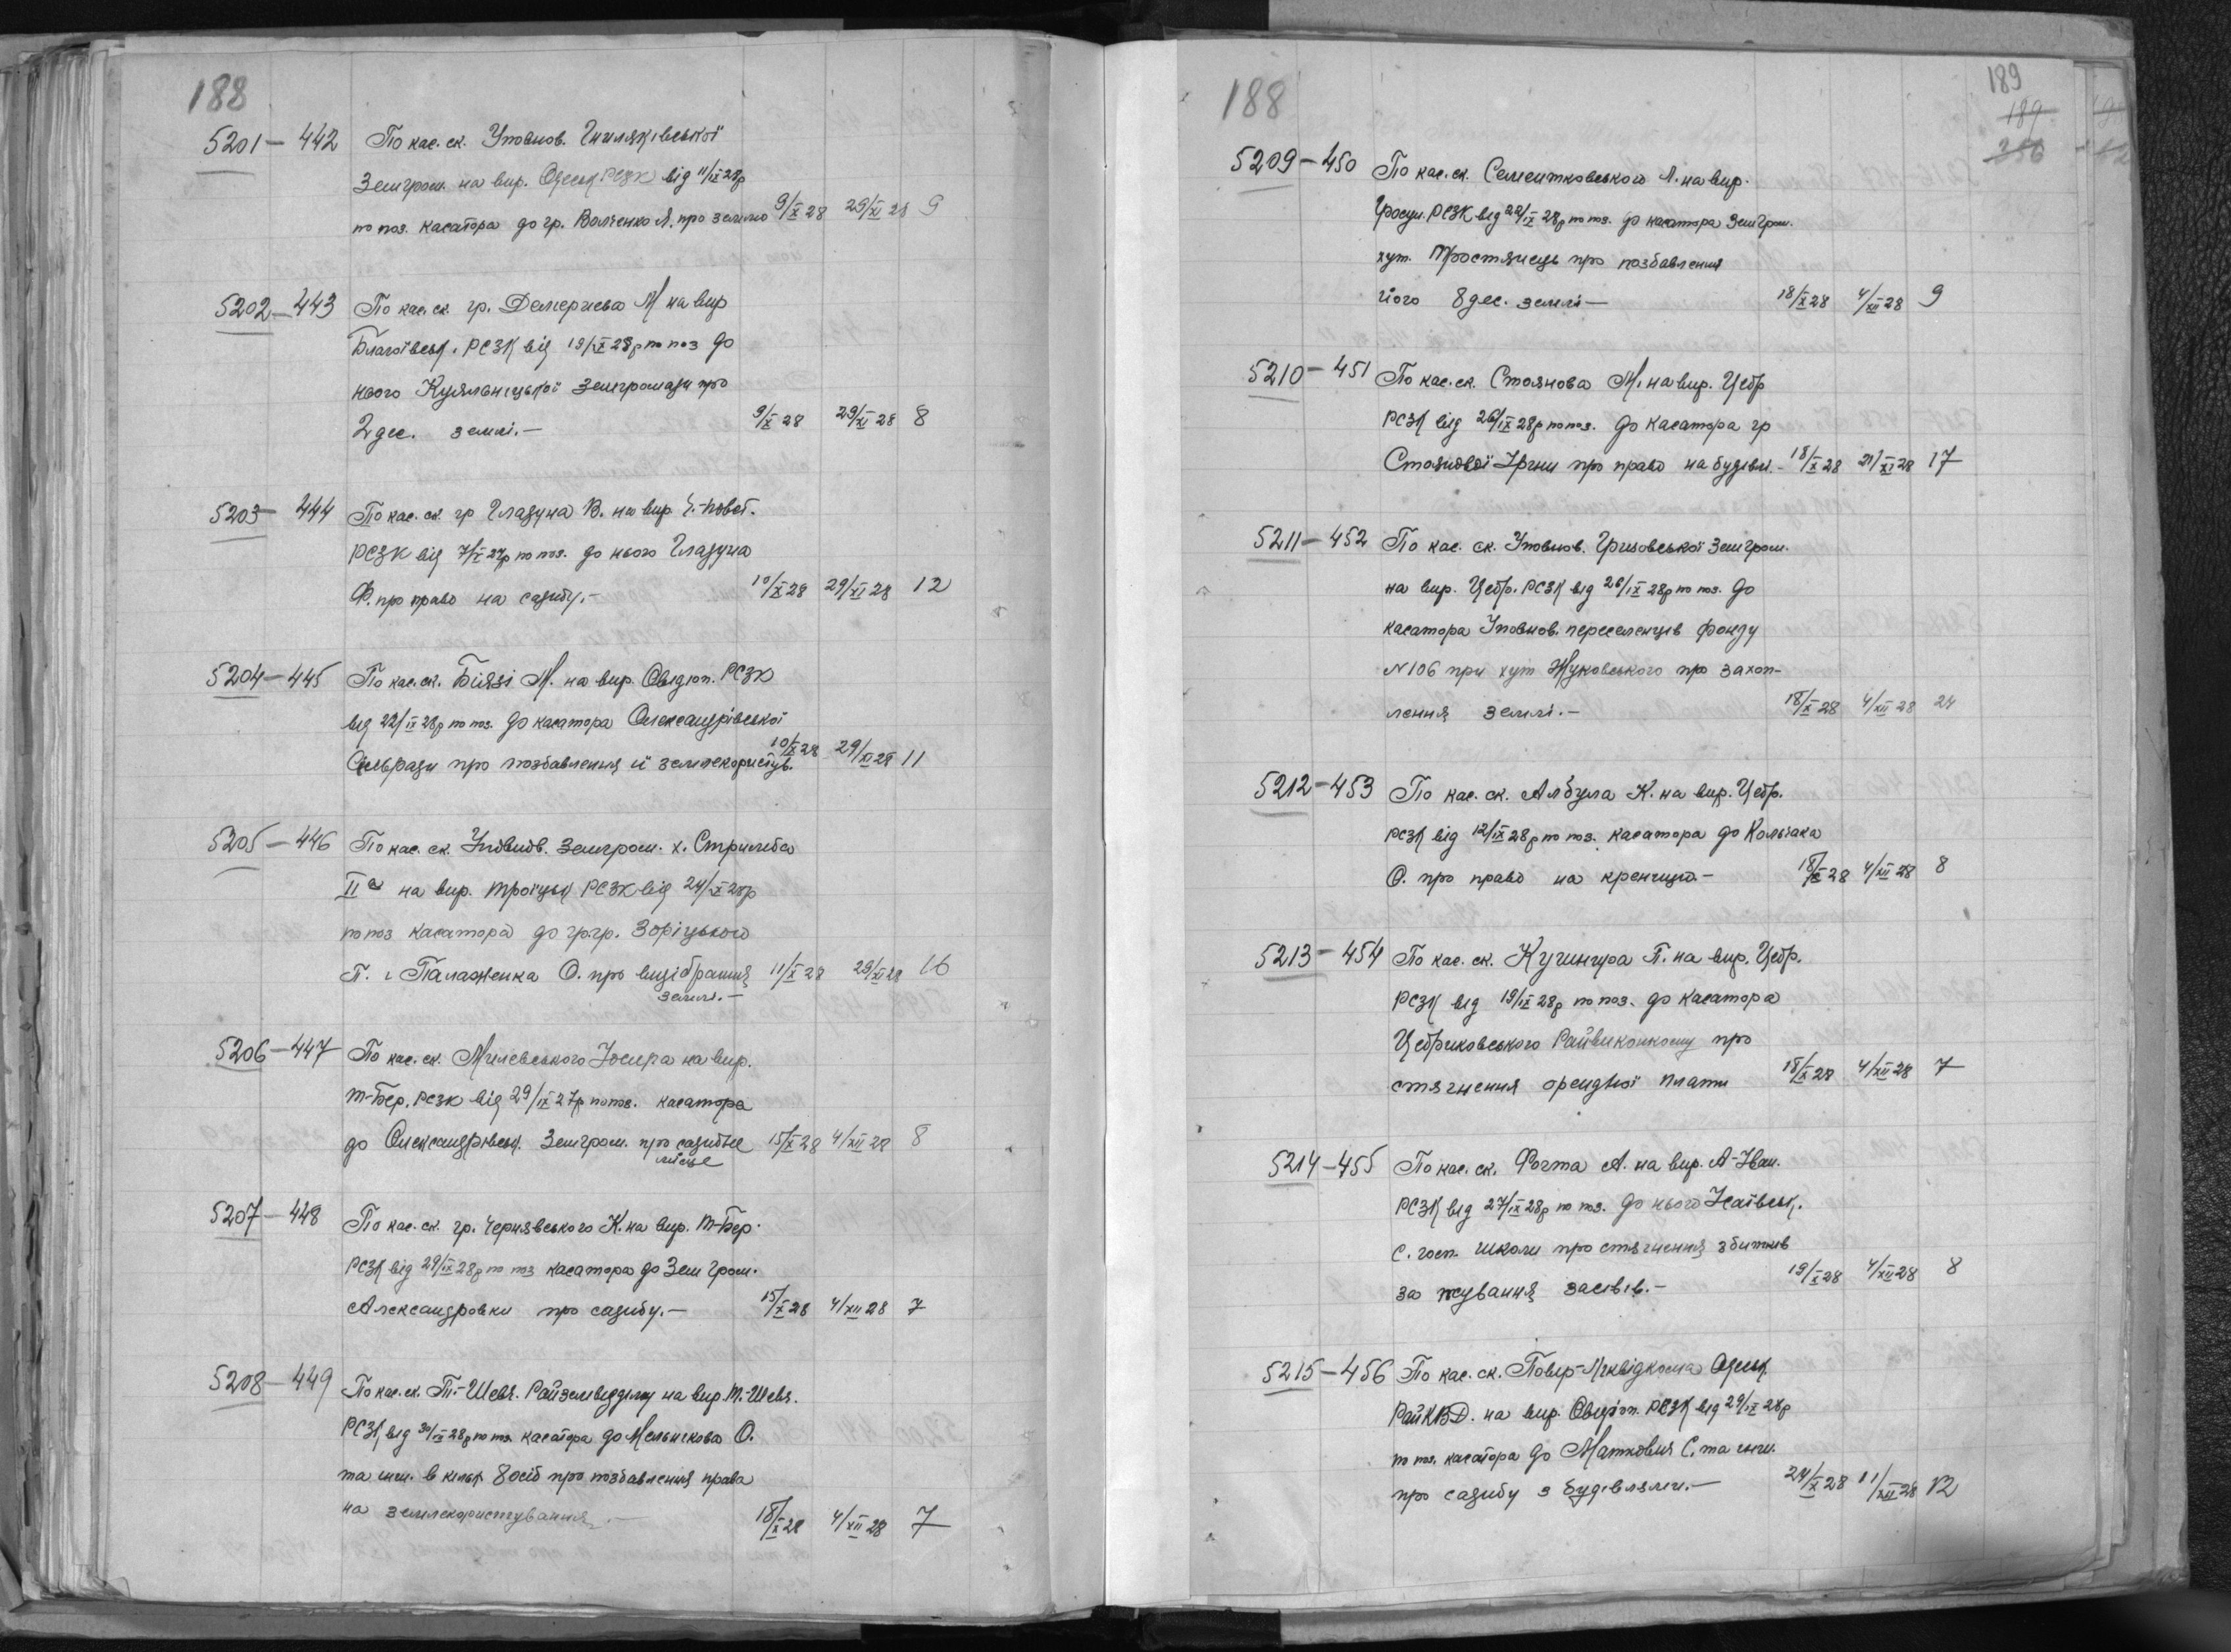 188
5201 — 442 По кас. ск. Уповнов.
Земгром. на вир. Одеськ РСЗК від 11/IX 28р
по поз. касатора до гр. Волченко Л. про землю 9/X 28 29/XI 28 9
5202 — 443 По кас. ск. гр. Демериева М на вир
Благоївськ. РСЗК від 19/IX 28р по поз до
нього Куяльніцької Земгромади про
2 дес. землі.— 9/X 28 29/XI 28 8
5203 — 444 По кас. ск. гр Гладуна В. на вир
РСЗК від 7/X 27р по поз. до нього Гладуна
Ф. про право на садибу.- 10/X 28 29/XI 28 12
5204 — 445 По кас. ск. Біязі М. на вир. Овидіоп. РСЗК
від 22/IX 28р по поз. до касатора Олександрівської
Сільради про позбавлення її землекористув. 10/X 28 29/XI 28 11
5205 — 446 По кас. ск. Уповнов. Земгром. х. Стримба
II а на вир. Троїцьк РСЗК від 24/IX 28р
по поз касатора до гр.гр. Зоріцького
П. і Палаженка О. про відібрання 11/X 28 29/XI 28 16
землі.—
5206 — 447 По кас. ск. Милевського Йосипа на вир.
Т-Бер. РСЗК від 29/IX 27р по поз. касатора
до Олександрівськ. Земгром. про садибне 15/X 28 4/XII 28 8
місце
5207 — 448 По кас. ск. гр. Чернявського К. на вир. Т-Бер.
РСЗК від 29/IX 28р по поз касатора до Зем Гром.
Александровки про садибу.— 15/X 28 4/XII 28 7
5208 — 449 По кас. ск. Т.-Шевч. Райземвідділу на вир. Т.-Шевч.
РСЗК від 30/IX 28р по поз. касатора до Мельникова О.
та инш. в кільк 8 осіб про позбавлення права
на землекористування.— 18/X 28 4/XII 28 7
188
189
189
256
5209 — 450 По кас. ск. Сементковського Л. на вир.
Гросул. РСЗК від 22/IX 28р по поз. до касатора Земгром.
хут. Тростянець про позбавлення
його 8 дес. землі— 18/X 28 4/XII 28 9
5210 — 451 По кас. ск. Стоянова М. на вир. Цебр
РСЗК від 26/IX 28р по поз. до касатора гр
Стоянової Ірини про право на будівлі.- 18/X 28 21/XI 28 17
5211 — 452 По кас. ск. Уповнов. Земгром.
на вир. Цебр. РСЗК від 26/IX 28р по поз. до
касатора Уповнов. переселенців фонду
N106 при хут Жуковського про захоп-
лення землі.— 18/X 28 4/XII 28 24
5212 — 453 По кас. ск. Албула К. на вир. Цебр.
РСЗК від 12/IX 28р по поз. касатора до Кольчака
О. про право на креницю.— 18/X 28 4/XII 28 8
5213 — 454 По кас. ск. Кучингра П. на вир. Цебр.
РСЗК від 19/IX 28р по поз. до касатора
Цебриковського Райвиконкому про
стягнення орендної плати 18/X 28 4/XII 28 7
5214 — 455 По кас. ск. Фогта А. на вир. А-Іван.
РСЗК від 27/IX 28р по поз. до нього Ісаївськ.
С. госп. школи про стягнення збитків
за псування засівів.— 19/X 28 4/XII 28 8
5215 — 456 По кас. ск. Повир-Ліквідкома Одеськ.
РайКВД. на вир. Овидіоп. РСЗК від 29/IX 28р
по поз. касатора до Матковия С. та инш.
про садибу з будівлями.— 24/X 28 11/XII 28 12